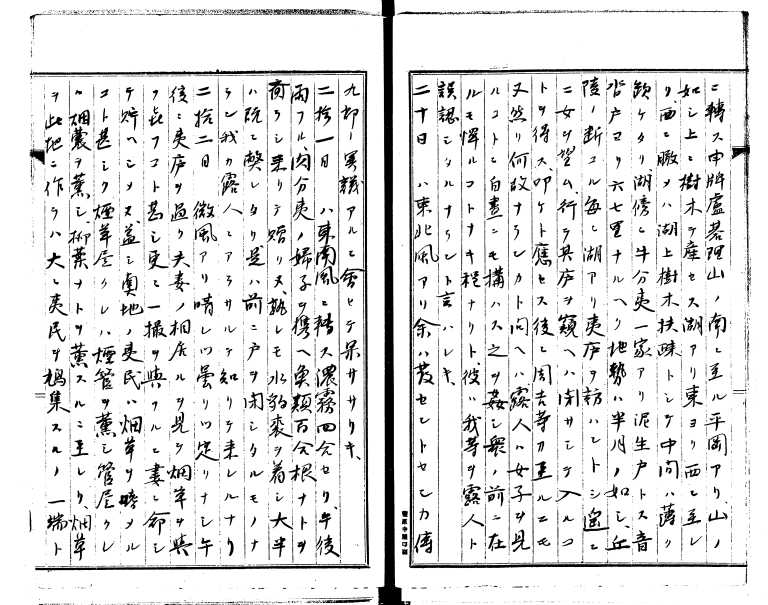 ニ轉ス申牌盧碁理山ノ南ニ至ル平岡アリ山ノ
如シ上ニ樹木ヲ産セス湖アリ東ヨリ西ニ至レ
リ西ニ臨メハ湖上樹木扶疎トシテ中間ハ薄ク
缺ケタリ湖傍ニ半分夷一家アリ泥生戸トス音
呰戸マテ六七里ナルヘク地勢ハ半月ノ如シ丘
陵ノ断ユル毎ニ湖アリ夷庐ヲ訪ハントシ遥ニ
二女ヲ望ム行テ其庐ヲ窺ヘハ閉サシテ入ルコ
トヲ得ス叩ケト應セス後ニ周吉等カ至ルニモ
又然リ何故ナランカト問ヘハ露人ハ女子ヲ見
ルコトニ白晝ニモ構ハス之ヲ姦シ衆ノ前ニ在
ルモ憚ルコトナキ程ナリト彼ハ我等ヲ露人ト
誤認シタルナラント言ハレキ
二十日 ハ東北風アリ余ハ發セントセシカ傳
九郎ノ異議アルニ會セテ果ササリキ
二拾一日 ハ東南風ニ轉ス濃霧四合セリ午後
雨フル肉分夷ノ婦子ヲ携ヘ魚類百合根ナトヲ
荷ヲシ来リテ贈リヌ孰レモ水豹裘ヲ着シ大半
ハ既ニ弊レタリ是ハ前ニ戸ヲ閉シタルモノナ
ラン我カ露人ニアラサルヲ知リテ来レルナリ
二拾二日 微風アリ晴レツ曇リツ定リナシ午
後ニ夷庐ヲ過ク夫妻ノ相居ルヲ見テ烟草ヲ與
ヲ㐂フコト甚シ更ニ一撮ヲ與フルニ妻ニ命シ
テ貯ヘシメヌ蓋シ奥地ノ夷民ハ烟草ヲ嗜メル
コト甚シク煙草尽クレハ煙管ヲ薫シ管尽クレ
ハ烟嚢ヲ薫シ柳葉ナトヲ薫スルニ至レリ烟草
ヲ此地ニ作ラハ大ニ夷民ヲ鳩集スルノ一端ト